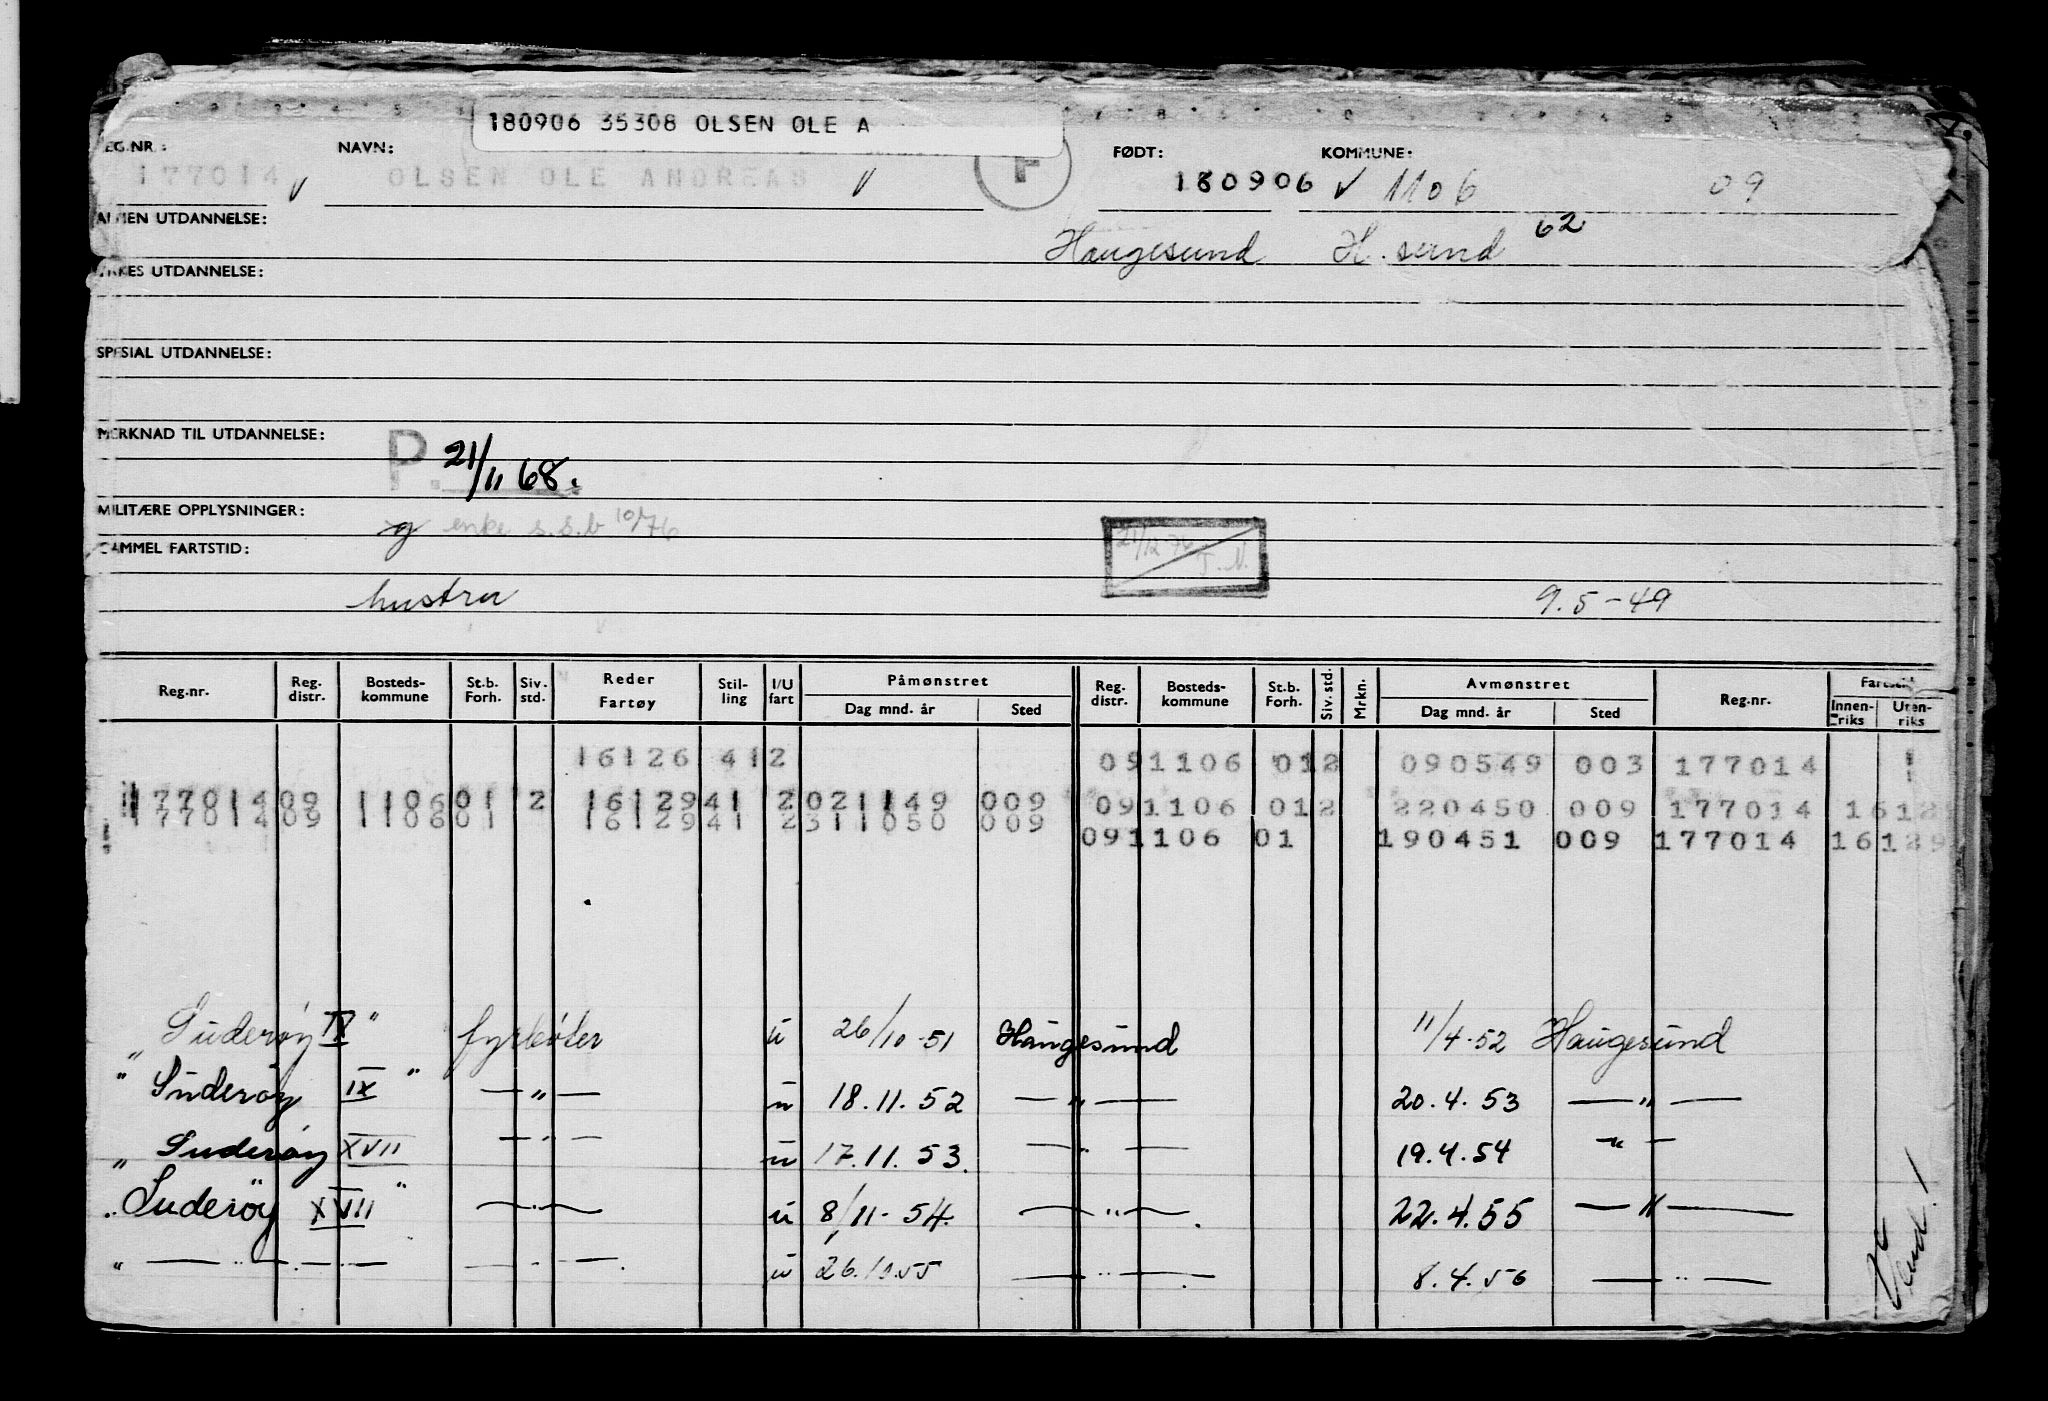 180906 35308 OLSEN OLE A
REG.NR.: NAVN: FØDT: KOMMUNE:
177014 v OLSEN OLE ANDREAS v F 180906 v 1106 09
ALMEN UTDANNELSE: 62
Haugesund H.sund
YRKES UTDANNELSE:
SPESIAL UTDANNELSE:
MERKNAD TIL UTDANNELSE:
P. 21/11 68.
MILITÆRE OPPLYSNINGER:
g enke s.s.b 10/76
21/12 76 T.N.
GAMMEL FARTSTID:
hustru 9.5-49
Reg.nr. Reg. distr. Bosteds-kommune St.b. Forh. Siv. std. Reder Fartøy Stil-ling I/U fart Påmønstret Dag mnd. år Sted Reg. distr. Bosteds-kommune St.b. Forh. Siv. std. Mrkn. Avmønstret Dag mnd. år Sted Reg.nr. Fartstid Innen-riks Uten-riks
16126 412 091106 012 090549 003 177014
177014 09 1106 01 2 16129 41 2 021149 009 091106 012 220450 009 177014 1612
177014 09 1106 01 16129 41 2 311050 009
091106 01 190451 009 177014 16129
„Suderøy IV" fyrbøter u 26/10-51 Haugesund 11/4-52 Haugesund
"Suderøy IX" —„— u 18.11.52 —„— 20.4.53 —„—
„Suderøy XVII —„— u 17.11.53. —„— 19.4.54 —„—
„Suderøy XVII" —„— u 8/11-54. —„—. 22.4.55 —„—
„—„—„— —„—. u 26.10.55 —„—. 8.4.56 —„—